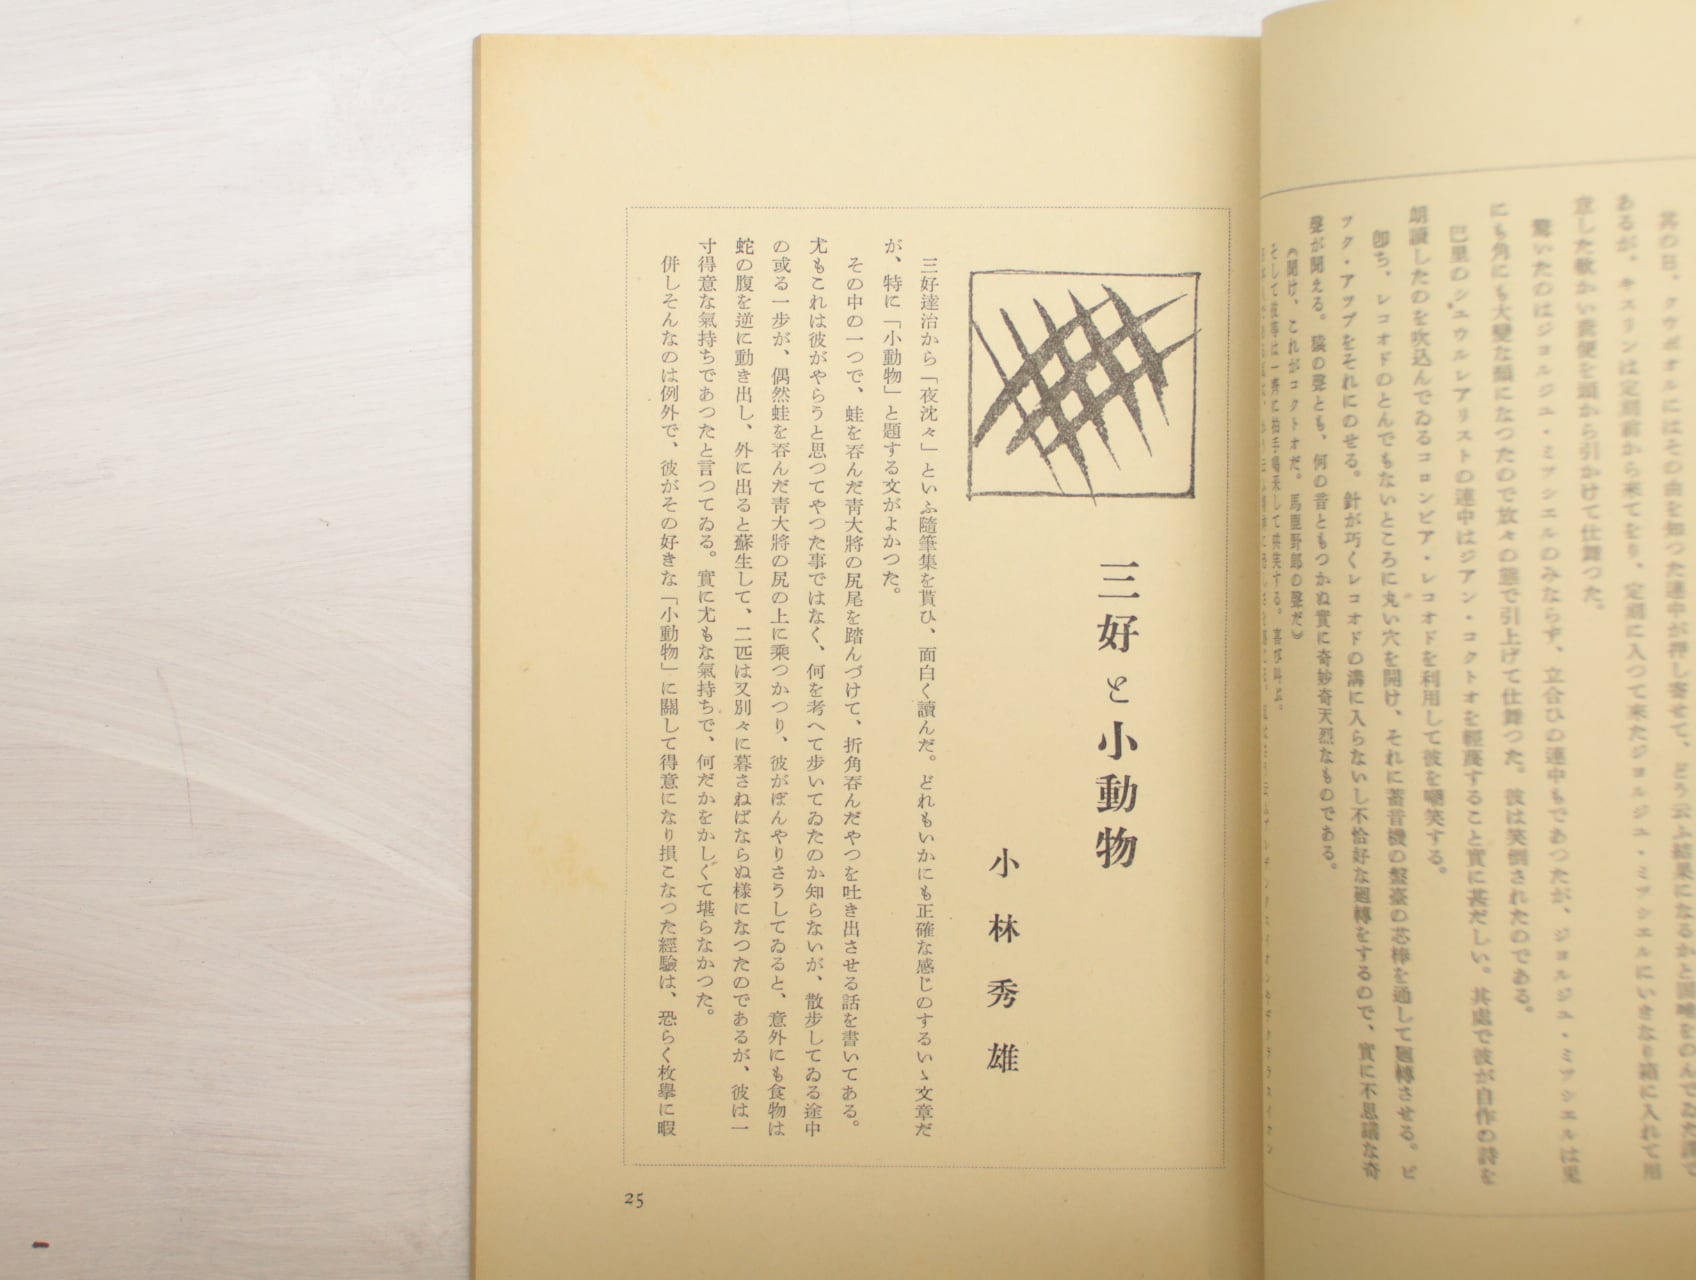 其の日、クウポオルにはその由を知つた連中が押し寄せて、どう云ふ結果になるかと固唾をのんでゐた譯で
あるが、キスリンは定刻前から來てをり、定刻に入つて來たジヨルジユ・ミツシエルにいきなり箱に入れて用
意した軟かい糞便を頭から引かけて仕舞つた。
驚いたのはジヨルジユ・ミツシエルのみならず、立合ひの連中もであつたが、ジヨルジユ・ミツシエルは兎
にも角にも大變な類になつたので放々の態で引上げて仕舞つた。彼は笑倒されたのである。
巴里のシユウルレアリストの連中はジアン・コクトオを輕蔑すること實に甚だしい。其處で彼が自作の詩を
朗讀したのを吹込んでゐるコロンビア・レコオドを利用して彼を嘲笑する。
卽ち、レコオドのとんでもないところに丸い穴を開け、それに蓄音機の盤臺の芯棒を通して廻轉させる。ピ
ツク・アツプをそれにのせる。針が巧くレコオドの溝に入らないし不恰好な廻轉をするので、實に不思議な奇
聲が聞える。猿の聲とも、何の音ともつかぬ實に奇妙奇天烈なものである。
《聞け、これがコクトオだ。馬鹿野郎の聲だ》
そして彼等は一齊に拍手喝采して哄笑する。喜び叫ぶ。
三好と小動物
小林秀雄
三好達治から「夜沈々」といふ隨筆集を貰ひ、面白く讀んだ。どれもいかにも正確な感じのするいゝ文章だ
が、特に「小動物」と題する文がよかつた。
その中の一つで、蛙を呑んだ靑大將の尻尾を踏んづけて、折角呑んだやつを吐き出させる話を書いてある。
尤もこれは彼がやらうと思つてやつた事ではなく、何を考へて步いてゐたのか知らないが、散步してゐる途中
の或る一步が、偶然蛙を呑んだ靑大將の尻の上に乘つかつり、彼がぼんやりさうしてゐると、意外にも食物は
蛇の腹を逆に動き出し、外に出ると蘇生して、二匹は又別々に暮さねばならぬ樣になつたのであるが、彼は一
寸得意な氣持ちであつたと言つてゐる。實に尤もな氣持ちで、何だかをかしくて堪らなかつた。
併しそんなのは例外で、彼がその好きな「小動物」に關して得意になり損こなつた經驗は、恐らく枚擧に暇
25